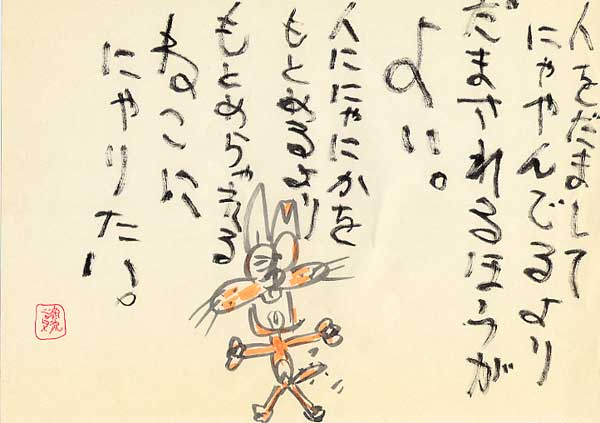 人をだまして
にゃやんでるより
だまされるほうが
よい。
人ににゃにかを
もとめるより
もとめらゃえる
ねこに
にゃりたい。